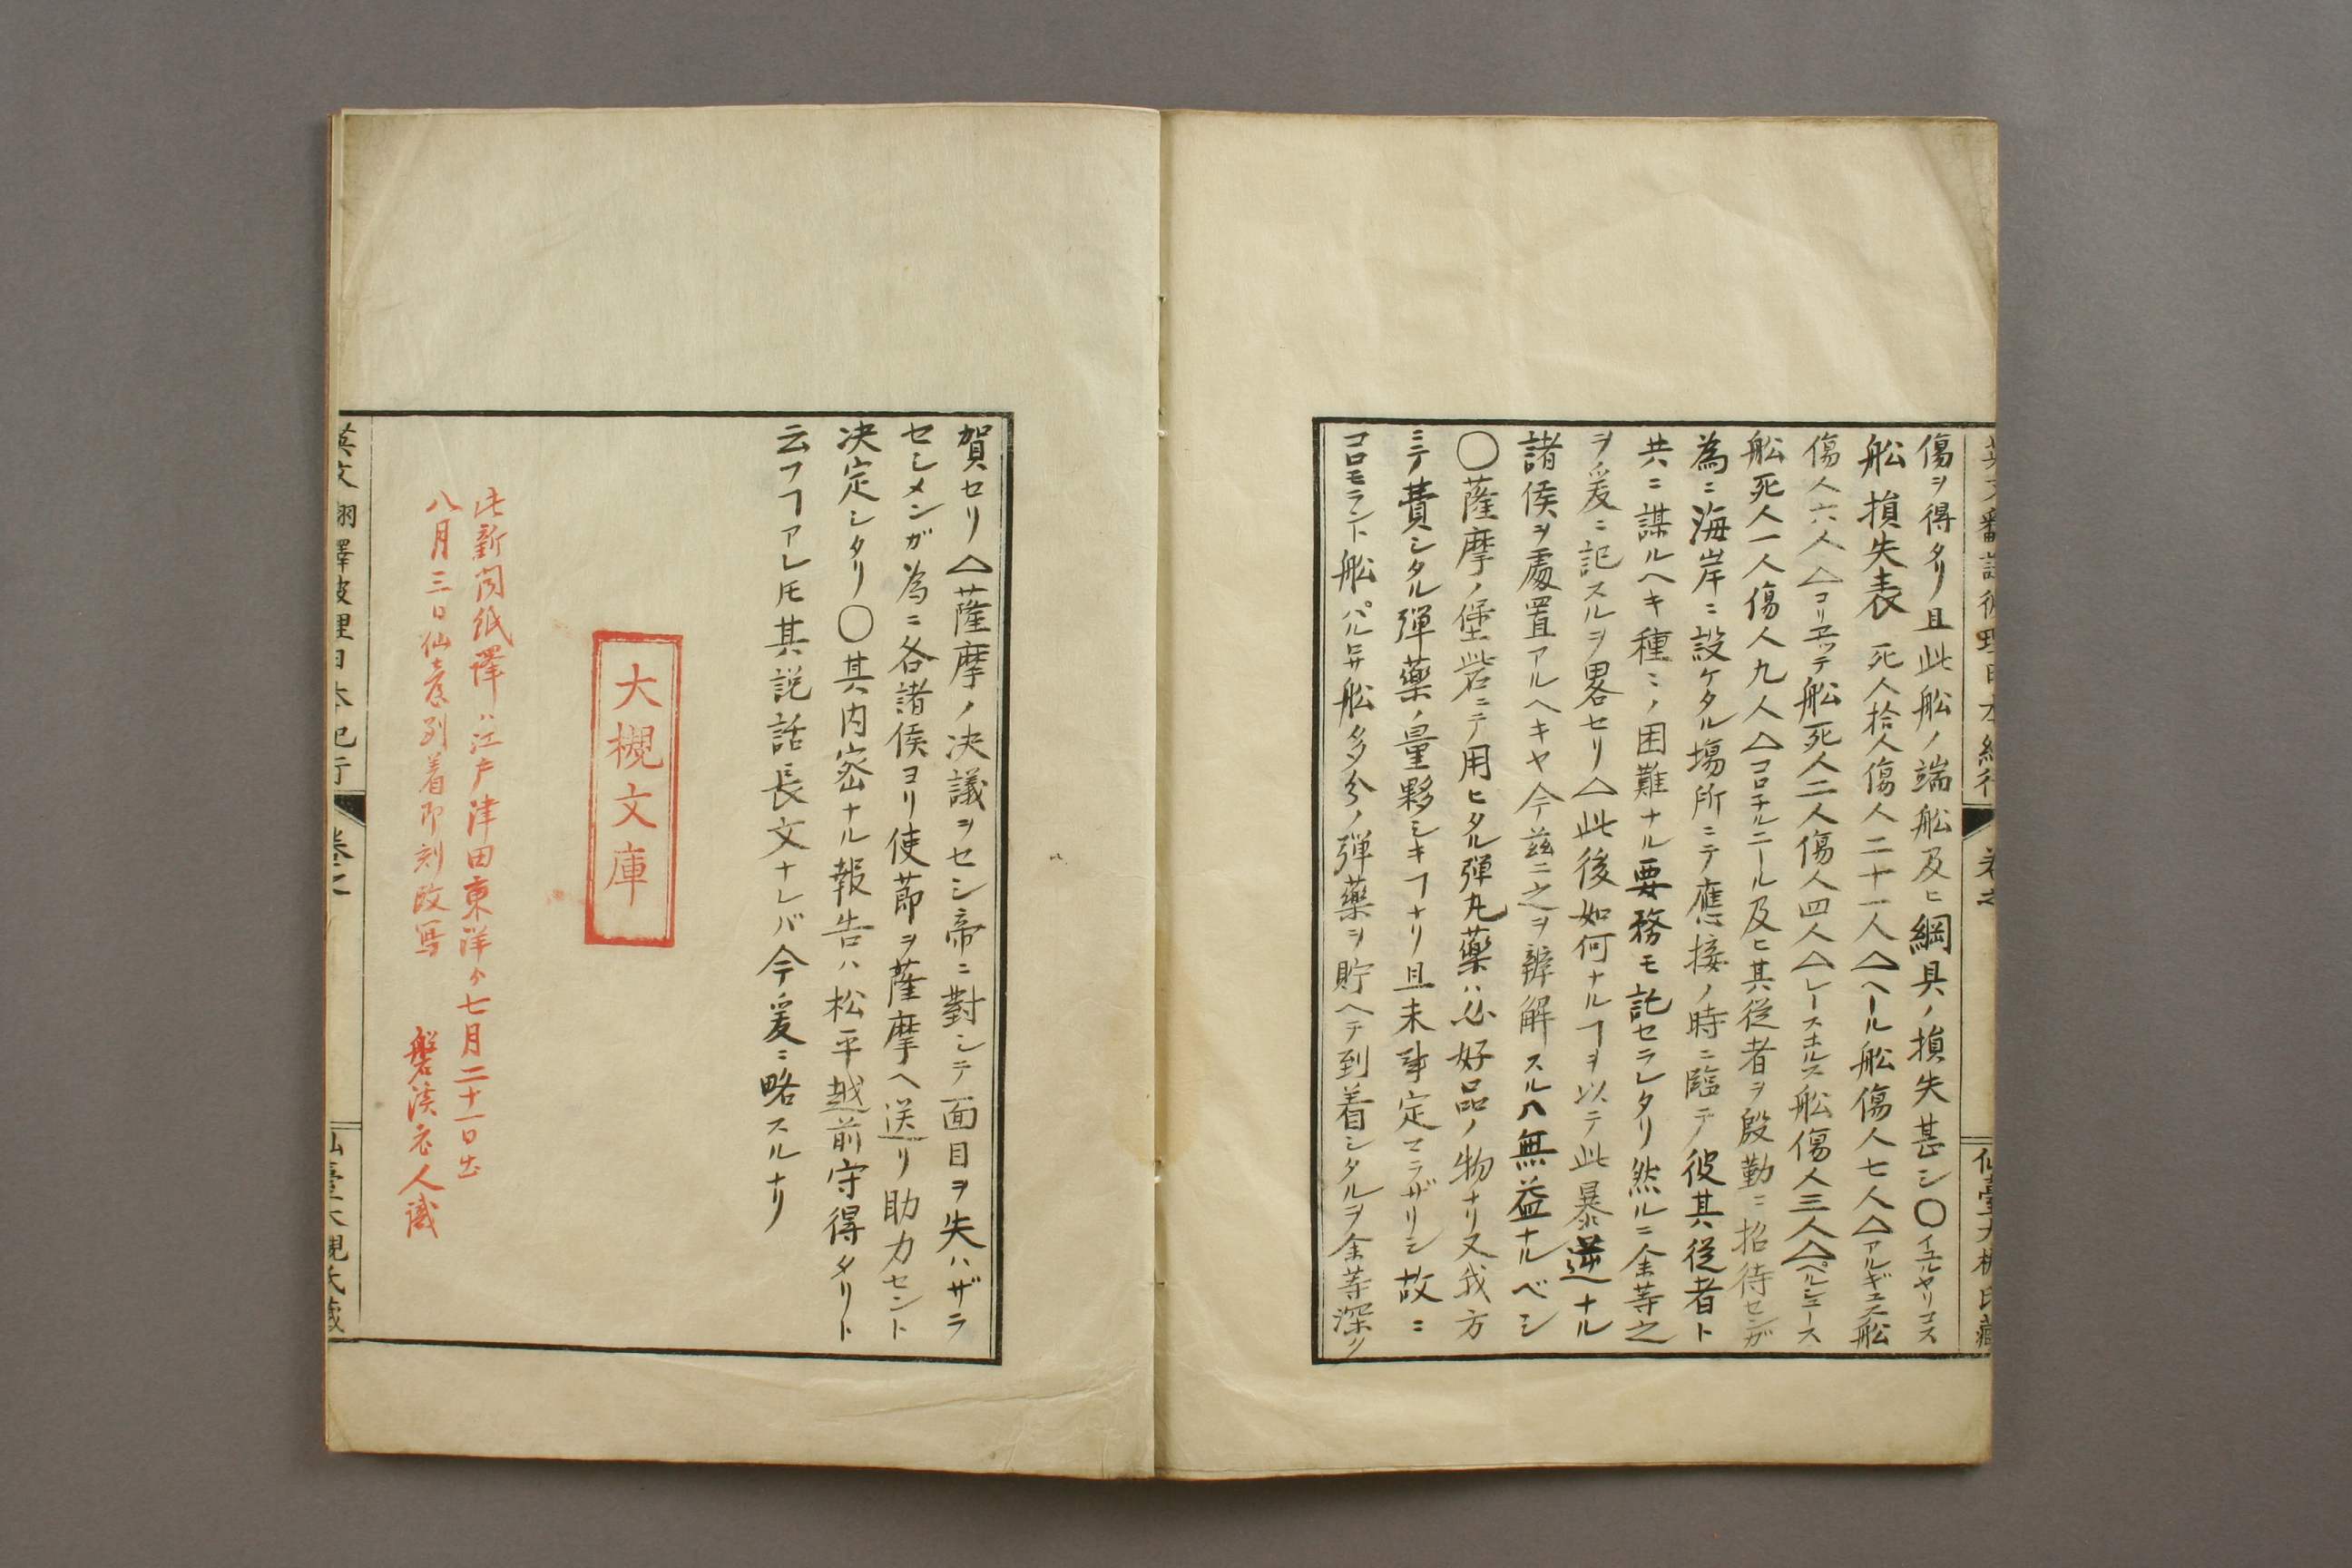 傷ヲ得タリ且此舩ノ端舩及ヒ綱具ノ損失甚シ〇イユルヤリユス
舩損失表 死人拾人傷人二十一人△ヘール舩傷人七人△アルギユス舩
傷人六人△コリエッテ舩死人二人傷人四人△レースホルス舩傷人三人△ペルシュース
舩死人一人傷人九人△コロチルニール及ヒ其従者ヲ殷勤ニ招待センガ
為ニ海岸ニ設ケタル塲所ニテ應接ノ時ニ臨テ彼其従者ト
共ニ謀ルヘキ種ミノ困難ナル要務モ託セラレタリ然ルニ余等之
ヲ爰ニ記スルヲ畧セリ△此後如何ナルヿヲ以テ此暴逆ナル
諸侯ヲ處置アルヘキヤ今茲ニ之ヲ辨解スルハ無益ナルベシ
〇薩摩ノ堡砦ニテ用ヒタル弾丸藥ハ必好品ノ物ナリ又我方
ニテ費シタル弾藥ノ量夥シキヿナリ且未事定マラザリシ故ニ
コロモラント舩パルセ舩多分ノ弾藥ヲ貯ヘテ到着シタルヲ余等深ク
賀セリ△薩摩ノ决議ヲセシ帝ニ對シテ面目ヲ失ハザラ
セシメンガ為ニ各諸侯ヨリ使節ヲ薩摩ヘ送リ助力セント
决定シタリ〇其内密ナル報告ハ松平越前守得タリト
云フヿアレ𪜈其説話長文ナレバ今爰ニ略スルナリ
大槻文庫
此新聞紙譯ハ江戸津田東洋ゟ七月二十一日出
八月三日仙臺到着即刻改写 磐渓老人識
英文翻譯彼理日本紀行
卷之
仙臺大槻氏藏